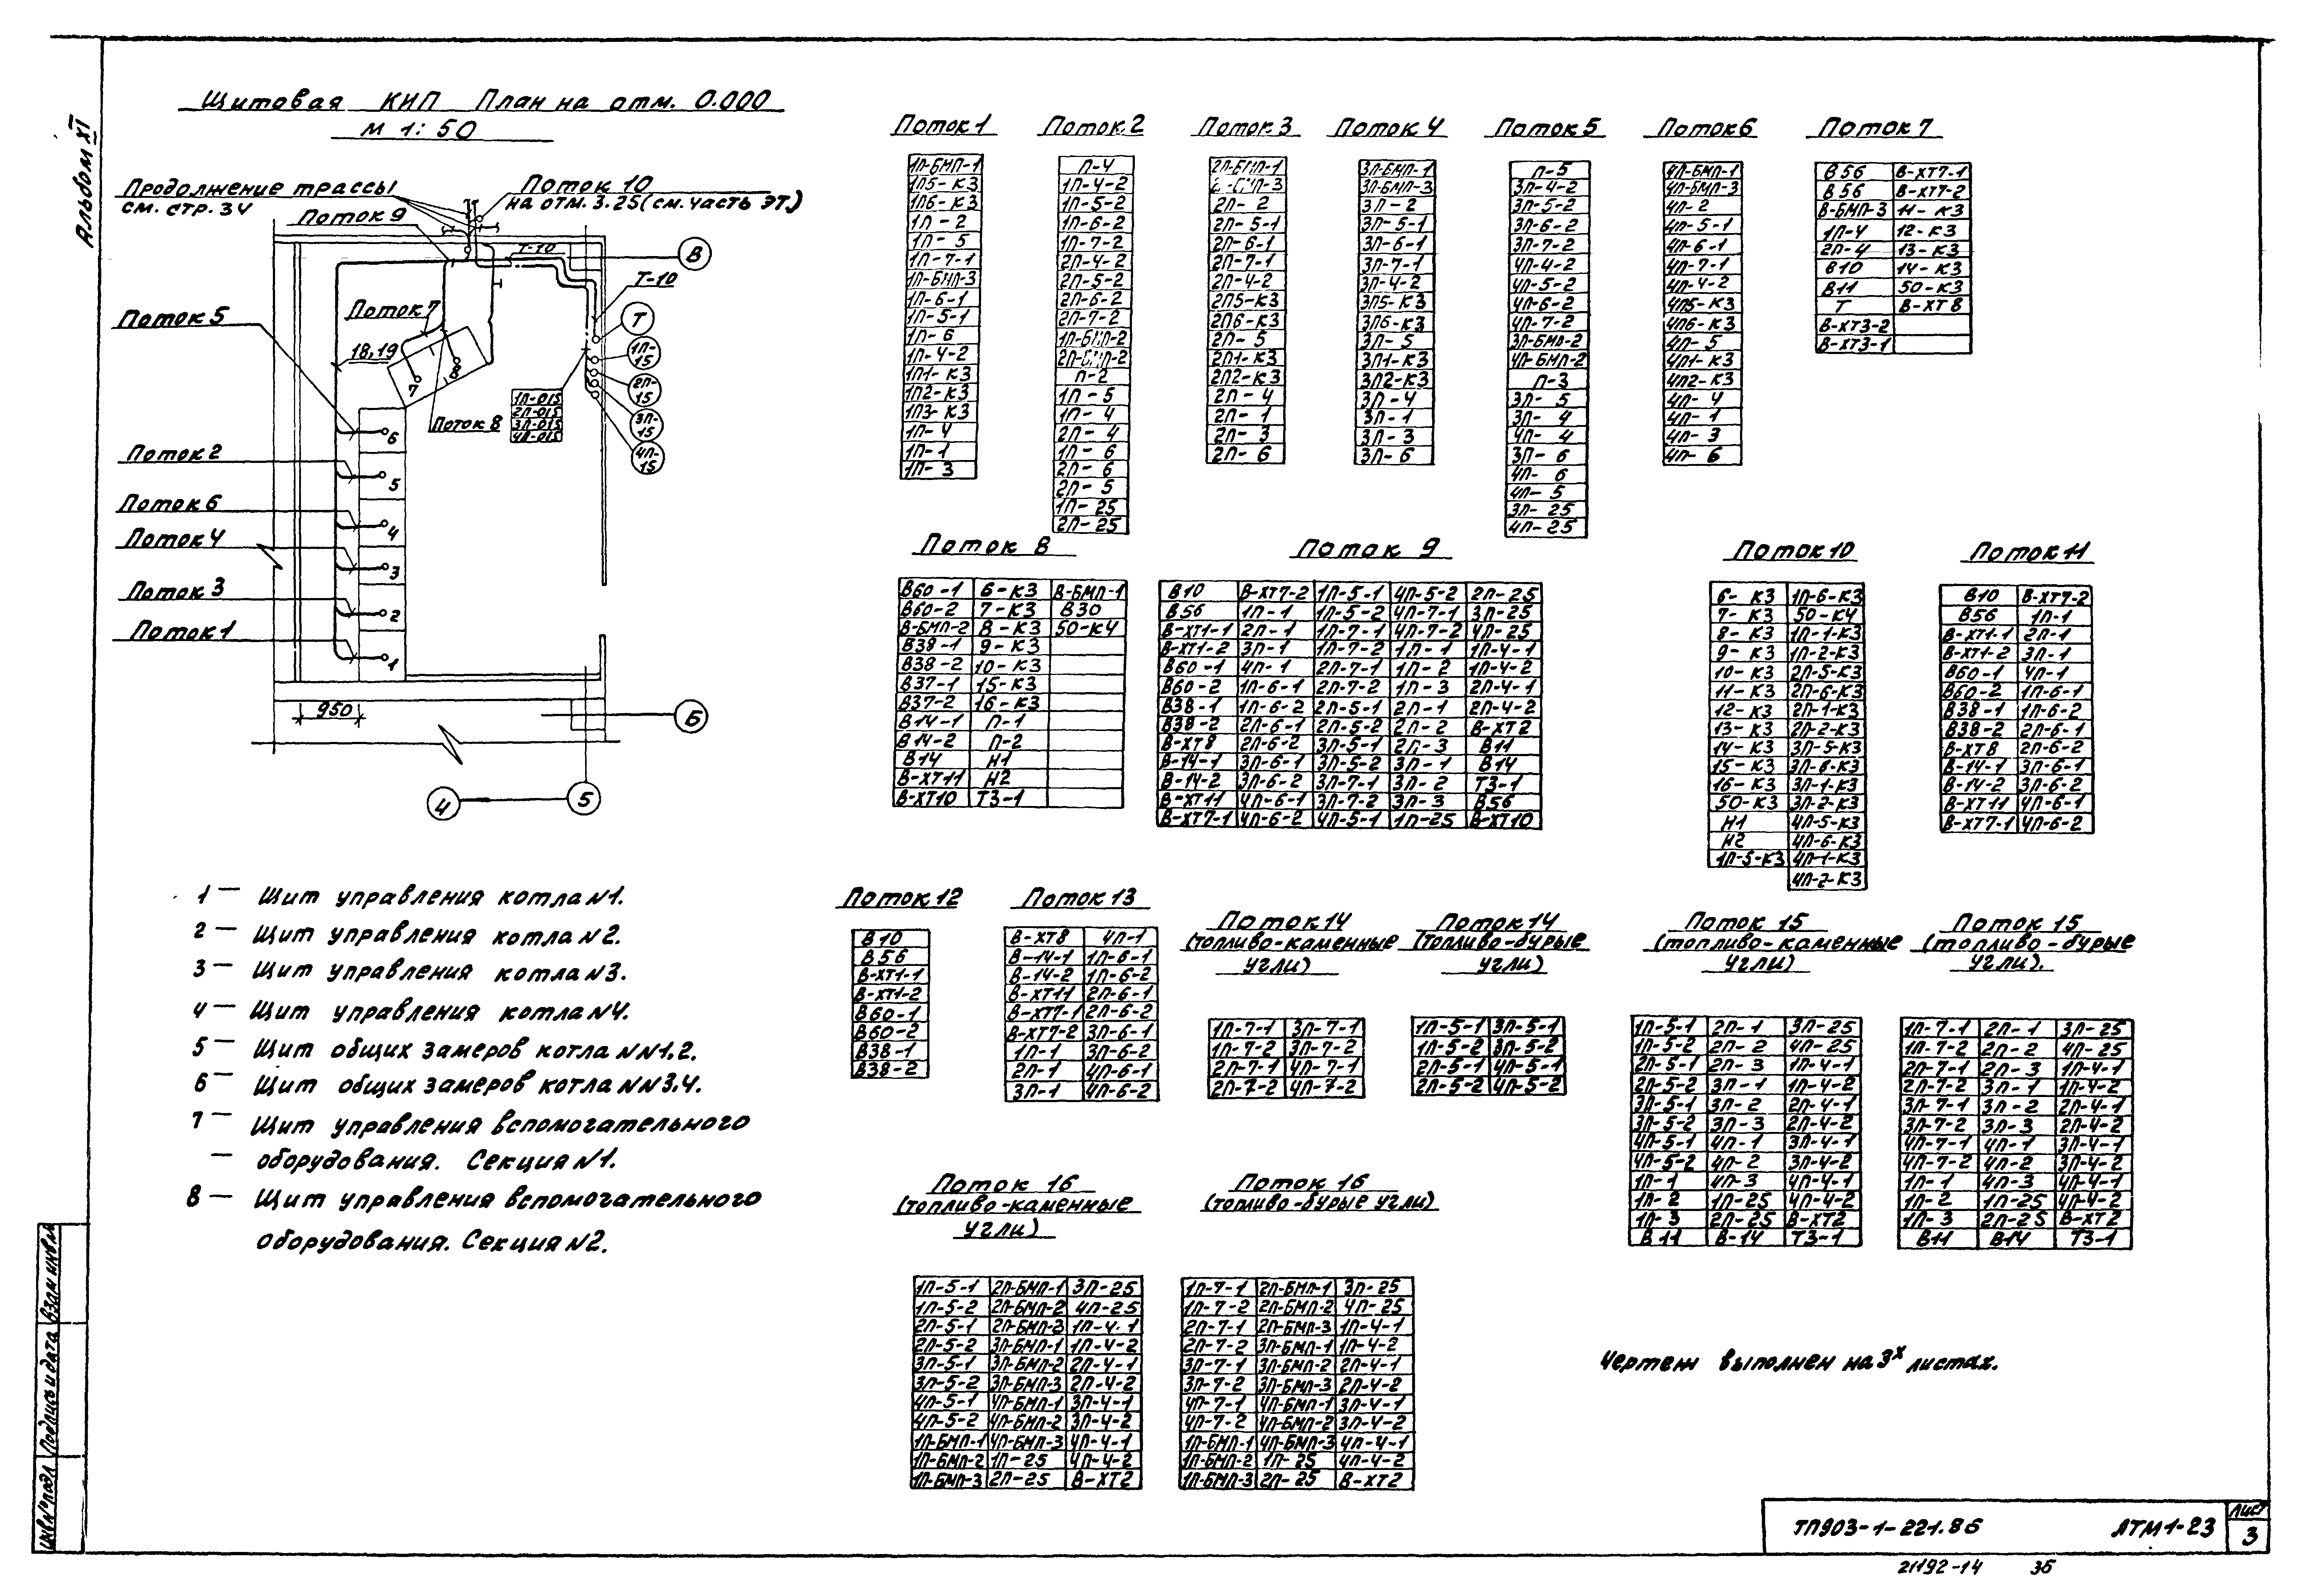 Альбом XI
Щитовая КИП План на отм. 0.000
М 1:50
Продолжение трассы
см. стр. 34
Поток 10
на отм. 3.25 (см. часть ЭТ)
Поток 9
Т-10
В
Т-10
Поток 7
Поток 5
18,19
Т
1П-15
2П-15
3П-15
4П-15
7
8
1П-015
2П-015
3П-015
4П-015
Поток 8
6
Поток 2
5
Поток 6
4
Поток 4
3
Поток 3
2
Поток 1
1
950
Б
4
5
1 — Щит управления котла N1.
2 — Щит управления котла N2.
3 — Щит управления котла N3.
4 — Щит управления котла N4.
5 — Щит общих замеров котла NN1.2.
6 — Щит общих замеров котла NN3.4.
7 — Щит управления вспомогательного
— оборудования. Секция N1.
8 — Щит управления вспомогательного
оборудования. Секция N2.
Поток 1
1П-БМП-1
1П5-К3
1П6-К3
1П-2
1П-5
1П-7-1
1П-БМП-3
1П-6-1
1П-5-1
1П-6
1П-4-2
1П1-К3
1П2-К3
1П3-К3
1П-4
1П-1
1П-3
Поток 2
П-4
1П-4-2
1П-5-2
1П-6-2
1П-7-2
2П-4-2
2П-5-2
2П-6-2
2П-7-2
1П-БМП-2
2П-БМП-2
П-2
1П-5
1П-4
2П-4
1П-6
2П-6
2П-5
1П-25
2П-25
Поток 3
2П-БМП-1
2П-2
2П-5-1
2П-6-1
2П-7-1
2П-4-2
2П5-К3
2П6-К3
2П-5
2П1-К3
2П2-К3
2П-4
2П-1
2П-3
2П-6
Поток 4
3П-БМП-1
3П-БМП-3
3П-2
3П-5-1
3П-6-1
3П-7-1
3П-4-2
3П5-К3
3П6-К3
3П-5
3П1-К3
3П2-К3
3П-4
3П-1
3П-3
3П-6
Поток 5
П-5
3П-4-2
3П-5-2
3П-6-2
3П-7-2
4П-4-2
4П-5-2
4П-6-2
4П-7-2
3П-БМП-2
4П-БМП-2
П-3
3П-5
3П-4
4П-4
3П-6
4П-6
4П-5
3П-25
4П-25
Поток 6
4П-БМП-1
4П-БМП-3
4П-2
4П-5-1
4П-6-1
4П-7-1
4П-4-2
4П5-К3
4П6-К3
4П-5
4П1-К3
4П2-К3
4П-4
4П-1
4П-3
4П-6
Поток 7
В56 В-ХТ7-1
В56 В-ХТ7-2
В-БМП-3 11-К3
1П-4 12-К3
2П-4 13-К3
В10 14-К3
В11 50-К3
Т В-ХТ8
В-ХТ3-2
В-ХТ3-1
Поток 8
В60-1 6-К3 В-БМП-1
В60-2 7-К3 В30
В-БМП-2 8-К3 50-К4
В38-1 9-К3
В38-2 10-К3
В37-1 15-К3
В37-2 16-К3
В14-1 П-1
В14-2 П-2
В14 Н1
В-ХТ11 Н2
В-ХТ10 Т3-1
Поток 9
В10 В-ХТ7-2 1П-5-1 4П-5-2 2П-25
В56 1П-1 1П-5-2 4П-7-1 3П-25
В-ХТ1-1 2П-1 1П-7-1 4П-7-2 4П-25
В-ХТ1-2 3П-1 1П-7-2 1П-1 1П-4-1
В60-1 4П-1 2П-7-1 1П-2 1П-4-2
В60-2 1П-6-1 2П-7-2 1П-3 2П-4-1
В38-1 1П-6-2 2П-5-1 2П-1 2П-4-2
В38-2 2П-6-1 2П-5-2 2П-2 В-ХТ2
В-ХТ8 2П-6-2 3П-5-1 2П-3 В11
В-14-1 3П-6-1 3П-5-2 3П-1 В14
В-14-2 3П-6-2 3П-7-1 3П-2 Т3-1
В-ХТ11 4П-6-1 3П-7-2 3П-3 В56
В-ХТ7-1 4П-6-2 4П-5-1 1П-25 В-ХТ10
Поток 10
6-К3 1П-6-К3
7-К3 50-К4
8-К3 1П-1-К3
9-К3 1П-2-К3
10-К3 2П-5-К3
11-К3 2П-6-К3
12-К3 2П-1-К3
13-К3 2П-2-К3
14-К3 3П-5-К3
15-К3 3П-6-К3
16-К3 3П-1-К3
50-К3 3П-2-К3
Н1 4П-5-К3
Н2 4П-6-К3
1П-5-К3 4П-1-К3
4П-2-К3
Поток 11
В10 В-ХТ7-2
В56 1П-1
В-ХТ1-1 2П-1
В-ХТ1-2 3П-1
В60-1 4П-1
В60-2 1П-6-1
В38-1 1П-6-2
В38-2 2П-6-1
В-ХТ8 2П-6-2
В-14-1 3П-6-1
В-14-2 3П-6-2
В-ХТ11 4П-6-1
В-ХТ7-1 4П-6-2
Поток 12
В10
В56
В-ХТ1-1
В-ХТ1-2
В60-1
В60-2
В38-1
В38-2
Поток 13
В-ХТ8 4П-1
В-14-1 1П-6-1
В-14-2 1П-6-2
В-ХТ11 2П-6-1
В-ХТ7-1 2П-6-2
В-ХТ7-2 3П-6-1
1П-1 3П-6-2
2П-1 4П-6-1
3П-1 4П-6-2
Поток 14
(топливо-каменные
угли)
1П-7-1 3П-7-1
1П-7-2 3П-7-2
2П-7-1 4П-7-1
2П-7-2 4П-7-2
Поток 14
(топливо-бурые
угли)
1П-5-1 3П-5-1
1П-5-2 3П-5-2
2П-5-1 4П-5-1
2П-5-2 4П-5-2
Поток 15
(топливо-каменные
угли)
1П-5-1 2П-1 3П-25
1П-5-2 2П-2 4П-25
2П-5-1 2П-3 1П-4-1
2П-5-2 3П-1 1П-4-2
3П-5-1 3П-2 2П-4-1
3П-5-2 3П-3 2П-4-2
4П-5-1 4П-1 3П-4-1
4П-5-2 4П-2 3П-4-2
1П-1 4П-3 4П-4-1
1П-2 1П-25 4П-4-2
1П-3 2П-25 В-ХТ2
В11 В-14 Т3-1
Поток 15
(топливо-бурые
угли).
1П-7-1 2П-1 3П-25
1П-7-2 2П-2 4П-25
2П-7-1 2П-3 1П-4-1
2П-7-2 3П-1 1П-4-2
3П-7-1 3П-2 2П-4-1
3П-7-2 3П-3 2П-4-2
4П-7-1 4П-1 3П-4-1
4П-7-2 4П-2 3П-4-2
1П-1 4П-3 4П-4-1
1П-2 1П-25 4П-4-2
1П-3 2П-25 В-ХТ2
В11 В14 Т3-1
Поток 16
(топливо-каменные
угли)
1П-5-1 2П-БМП-1 3П-25
1П-5-2 2П-БМП-2 4П-25
2П-5-1 2П-БМП-3 1П-4-1
2П-5-2 3П-БМП-1 1П-4-2
3П-5-1 3П-БМП-2 2П-4-1
3П-5-2 3П-БМП-3 2П-4-2
4П-5-1 4П-БМП-1 3П-4-1
4П-5-2 4П-БМП-2 3П-4-2
1П-БМП-1 4П-БМП-3 4П-4-1
1П-БМП-2 1П-25 4П-4-2
1П-БМП-3 2П-25 В-ХТ2
Поток 16
(топливо-бурые угли)
1П-7-1 2П-БМП-1 3П-25
1П-7-2 2П-БМП-2 4П-25
2П-7-1 2П-БМП-3 1П-4-1
2П-7-2 3П-БМП-1 1П-4-2
3П-7-1 3П-БМП-2 2П-4-1
3П-7-2 3П-БМП-3 2П-4-2
4П-7-1 4П-БМП-1 3П-4-1
4П-7-2 4П-БМП-2 3П-4-2
1П-БМП-1 4П-БМП-3 4П-4-1
1П-БМП-2 1П-25 4П-4-2
1П-БМП-3 2П-25 В-ХТ2
Чертеж выполнен на 3х листах.
ТП903-1-221.86 АТМ1-23
Лист
3
21192-14 36
Инв № подл Подпись и дата Взам инв №